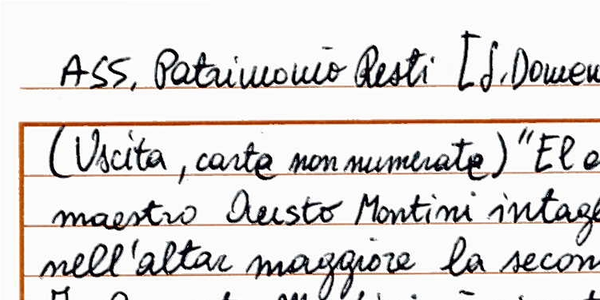 ASS, Patrimonio Resti [S. Domen
(Uscita, carte non numerate) "El
maestro Austo Montini intagl
nell'altar maggiore la secon